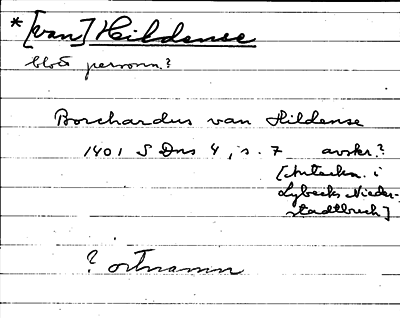 * [van] Hildense
blott personn.?
Borchardus van Hildense
1401 S Dns 4, s. 7 avskr.?
[Anteckn. i
Lybecks Nieder-
stadtbuch]
? ortnamn